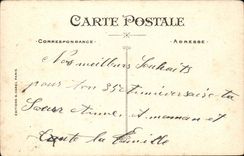 CARTE POSTALE
CORRESPONDANCE
ADRESSE
Nos meilleurs Souhaits
pour ton 35e anniversaire ta
Soeur Aimée et maman et
Toute la Famille